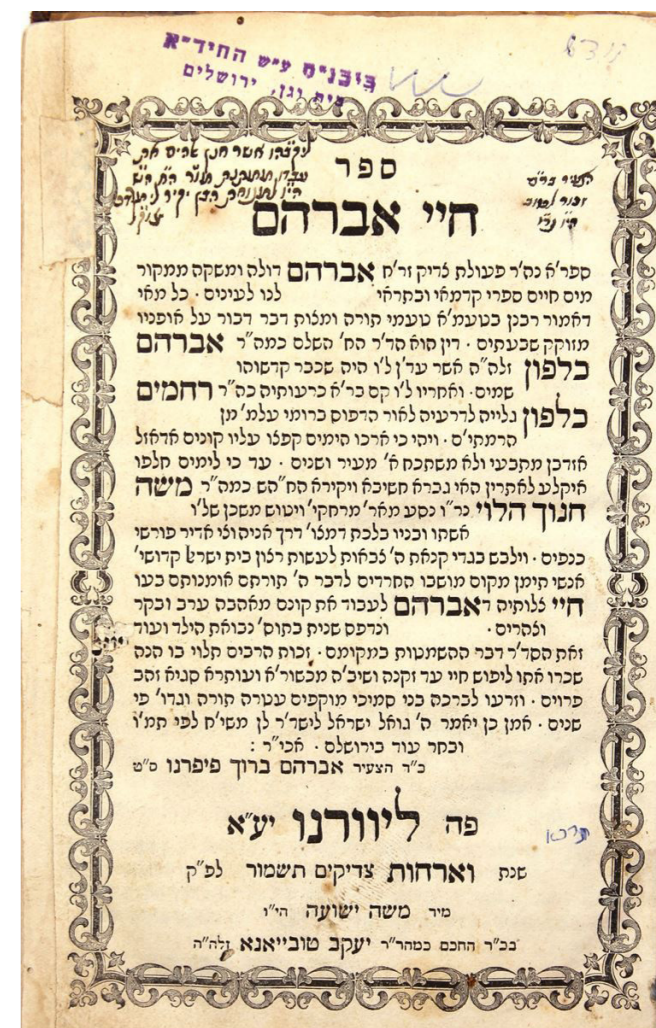 בזבנ״ח ע״ש החיד״א
בית וגן, ירושלים
ספר
חיי אברהם
ספר״א נה״ר פעולת צדיק זר״ח אברהם דולה ומשקה ממקור
מים חיים ספרי קדמאי ובתראי לנו לעינים . כל מאי
דאמור רבנן בטעמ״א טעמי תורה ומצות דבר דבור על אופניו
מזוקק שבעתים . דין הוא הד״ר הח׳ השלם כמה״ר אברהם
כלפון זלה״ה אשר עד״ן ל״ו היה שככר קדשוהו
שמים . ואחריו ל״ו קם בר״א כרעותיה כה״ר רחמים
כלפון גלייה לדרעיה לאור הדפוס ברומי עלמ׳ מן
הרמתי״ם . ויהי כי ארכו הימים קפצו עליו קונים אדאזל
אזדבן מתבעי ולא משתכח א׳ מעיר ושנים . עד כי לימים חלפו
איקלע לאתרין האי גברא חשיבא ויקירא הח״הש כמה״ר משה
חנוך הלוי נר״ו נסע מאר׳ מרחקי׳ ויטוש משכן של״ו
אשתו ובניו בלכת דמצו׳ דרך אניה וצי אדיר פורשי
כנפים . וילבש בגדי קנאת ה׳ צבאות לעשות רצון בית ישראל קדושי׳
אנשי תימן מקום מושבו החרדים לדבר ה׳ תורתם אומנותם בעו
חיי צלותיה דאברהם לעבוד את קונם מאהבה ערב ובקר
וצהרים . ונדפס שנית בתוס׳ נבואת הילד ועוד
זאת הסד״ר דבר ההשמטות במקומם . זכות הרבים תלוי בו הנה
שכרו אתו ליפוש חיי עד זקנה ושיב״ה מכשור״א ועותרא סגיא זהב
פרוים . וזרעו לברכה בני סמיכי מוקפים עטרה תורה וגדו׳ פי
שנים . אמן כן יאמר ה׳ גואל ישראל לישד״ר לן משי״ח לפי תמ״ו
ובחר עוד בירושלם . אכי״ר :
כ״ד הצעיר אברהם ברוך פיפרנו ס״ט
פה ליוורנו יע״א
שנת וארחות צדיקים תשמור לפ״ק
מיר משה ישועה הי״ו
בכ״ר החכם כמהר״ר יעקב טובייאנא זלה״ה